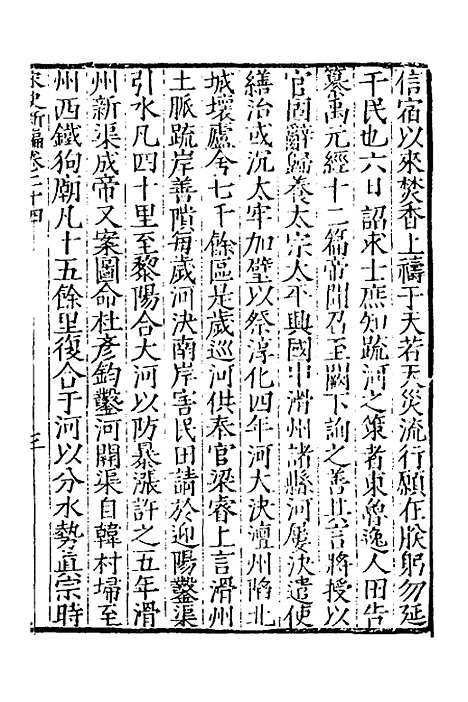 信宿以來焚香上禱于天若天災流行願在朕躬勿延
于民也六日詔求士庶知疏河之策者東魯逸人田告
纂禹元經十二篇帝聞召至闕下詢之善其言將授以
官固辭歸養太宗太平興國中滑州諸縣河屢決遣使
繕治或沉太牢加璧以祭淳化四年河大決澶州陷北
城壞廬舍七千餘區是歲巡河供奉官梁睿上言滑州
土脈疏岸善隤每歲河決南岸害民田請於迎陽鑿渠
引水凡四十里至黎陽合大河以防暴漲許之五年滑
州新渠成帝又案圖命杜彥鈞鑿河開渠自韓村埽至
州西鐵狗廟凡十五餘里復合于河以分水勢真宗時
宋史新編卷二十四
三